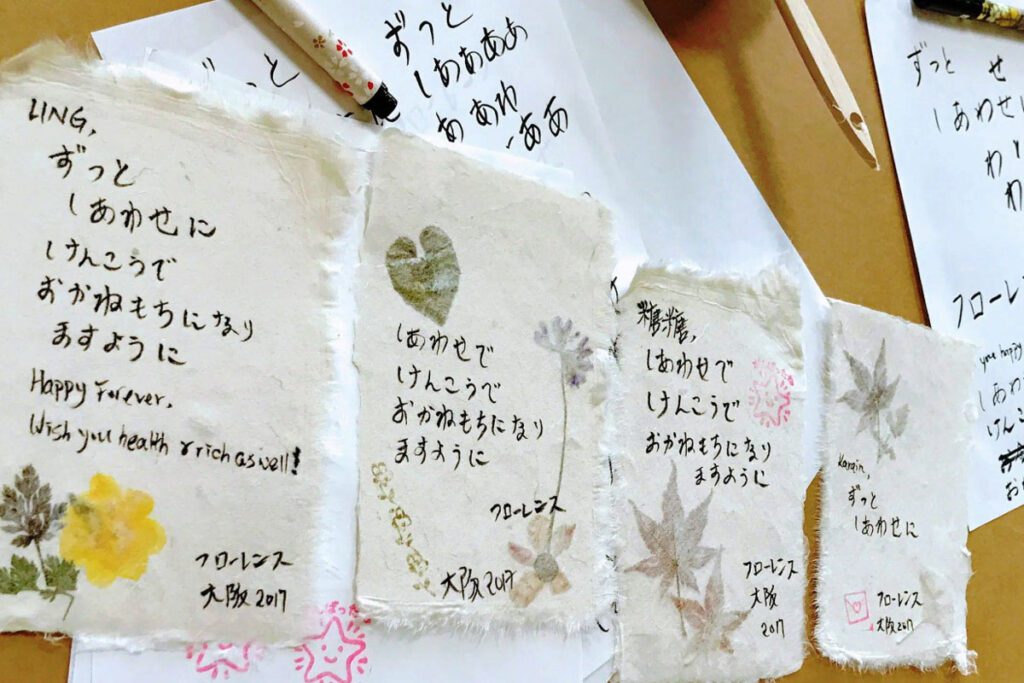 ずっと
ずっと
しああああ
ああわ
ああ
LING,
ずっと
しあわせに
けんこうで
おかねもちになり
ますように
Happy Forever,
Wish you health & rich as well!
フローレンス
大阪 2017
しあわせで
けんこうで
おかねもちになり
ますように
フローレンス
大阪 2017
糖糖,
しあわせで
けんこうで
おかねもちになり
ますように
フローレンス
大阪
2017
ずっと
しあわせに
フローレンス
大阪 2017
ずっと せ
しあわせ
わ
わ
フローレ
you happy
しあわ
けんこ